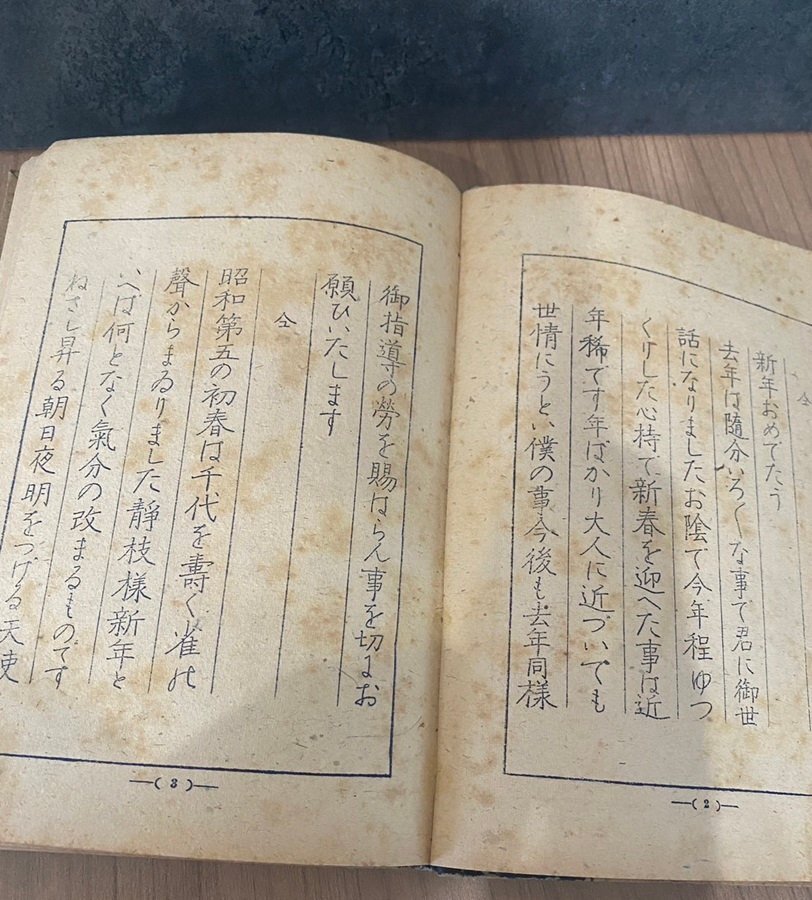 仝
新年おめでたう
去年は隨分いろ〱な事で君に御世
話になりましたお陰で今年程ゆつ
くりした心持で新春を迎へた事は近
年稀です年ばかり大人に近づいても
世情にうとい僕の事今後も去年同樣
—(2)—
御指導の勞を賜はらん事を切にお
願ひいたします
仝
昭和第五の初春は千代を壽ぐ雀の
聲からまゐりました靜枝樣新年と
いへば何となく氣分の改まるものです
ねさし昇る朝日夜明をつげる天使
—(3)—